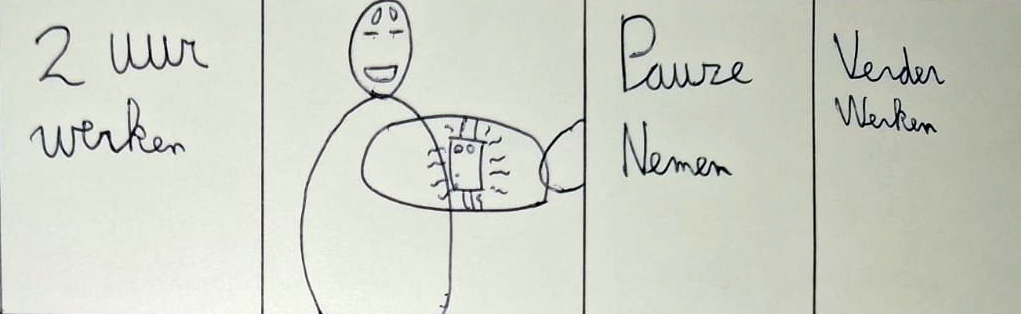 2 uur
werken
Pauze
Nemen
Verder
Werken